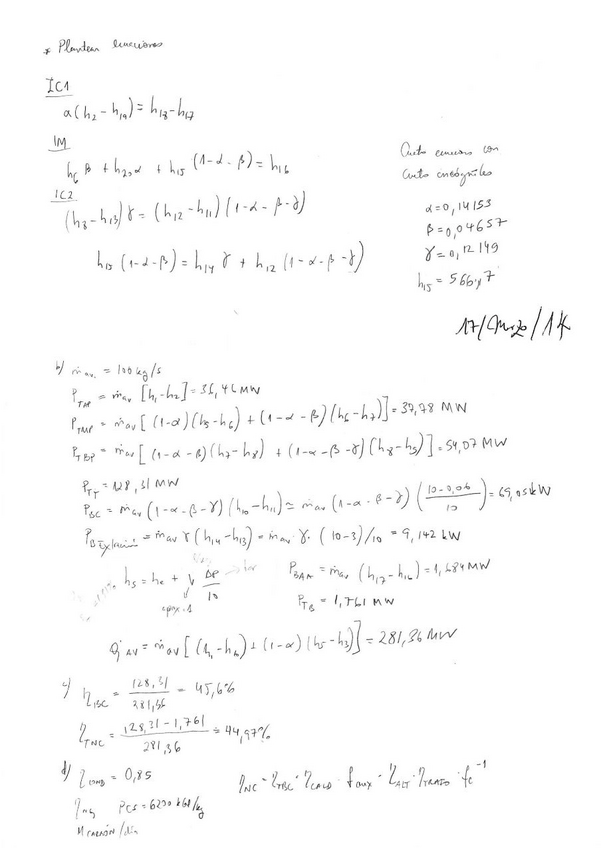 * Plantear ecuaciones
IC1
α(h₂ - h₁₉) = h₁₈ - h₁₇
IM
h₆ β + h₂₀ α + h₁₅ (1-α-β) = h₁₆
IC2
(h₈ - h₁₃) γ = (h₁₂ - h₁₁) (1-α-β-γ)
h₁₅ (1-α-β) = h₁₄ γ + h₁₂ (1-α-β-γ)
Cuatro ecuaciones con
cuatro incógnitas
α = 0,14153
β = 0,04657
γ = 0,12149
h₁₅ =
17/Marzo/14
b) ṁ av. = 100 kg/s
P_TAP = ṁav [h₁-h₂] = 36,46 MW
P_TMP = ṁav [ (1-α)(h₅-h₆) + (1-α-β)(h₆-h₇)] = 37,78 MW
P_TBP = ṁav [ (1-α-β)(h₇-h₈) + (1-α-β-γ)(h₈-h₉)] = 54,07 MW
P_TT = 128,31 MW
P_BC = ṁav (1-α-β-γ) (h₁₀-h₁₁) ≃ ṁav (1-α-β-γ) ((10-0,06)/10) = kW
= ṁav γ (h₁₄-h₁₃) = ṁav γ · (10-3)/10 = 9,142 kW
hs = he + ΔP/10
aprox. 1
P_BAA = ṁav (h₁₇-h₁₆) = 1,684 MW
P_TB = 1,761 MW
Q̇ AV = ṁav [ (h₁-h₁₈) + (1-α)(h₅-h₃)] = 281,36 MW
c) η_TBC = 128,31/281,36 = 45,6%
η_TNC = (128,31-1,761)/281,36 = 44,97%
d) η_COMB = 0,85
η_NC = η_TBC · η_CALD · f aux · η_ALT · η_TRAFO · fc⁻¹
PCS = 6200 kcal/kg
M CARBÓN/día